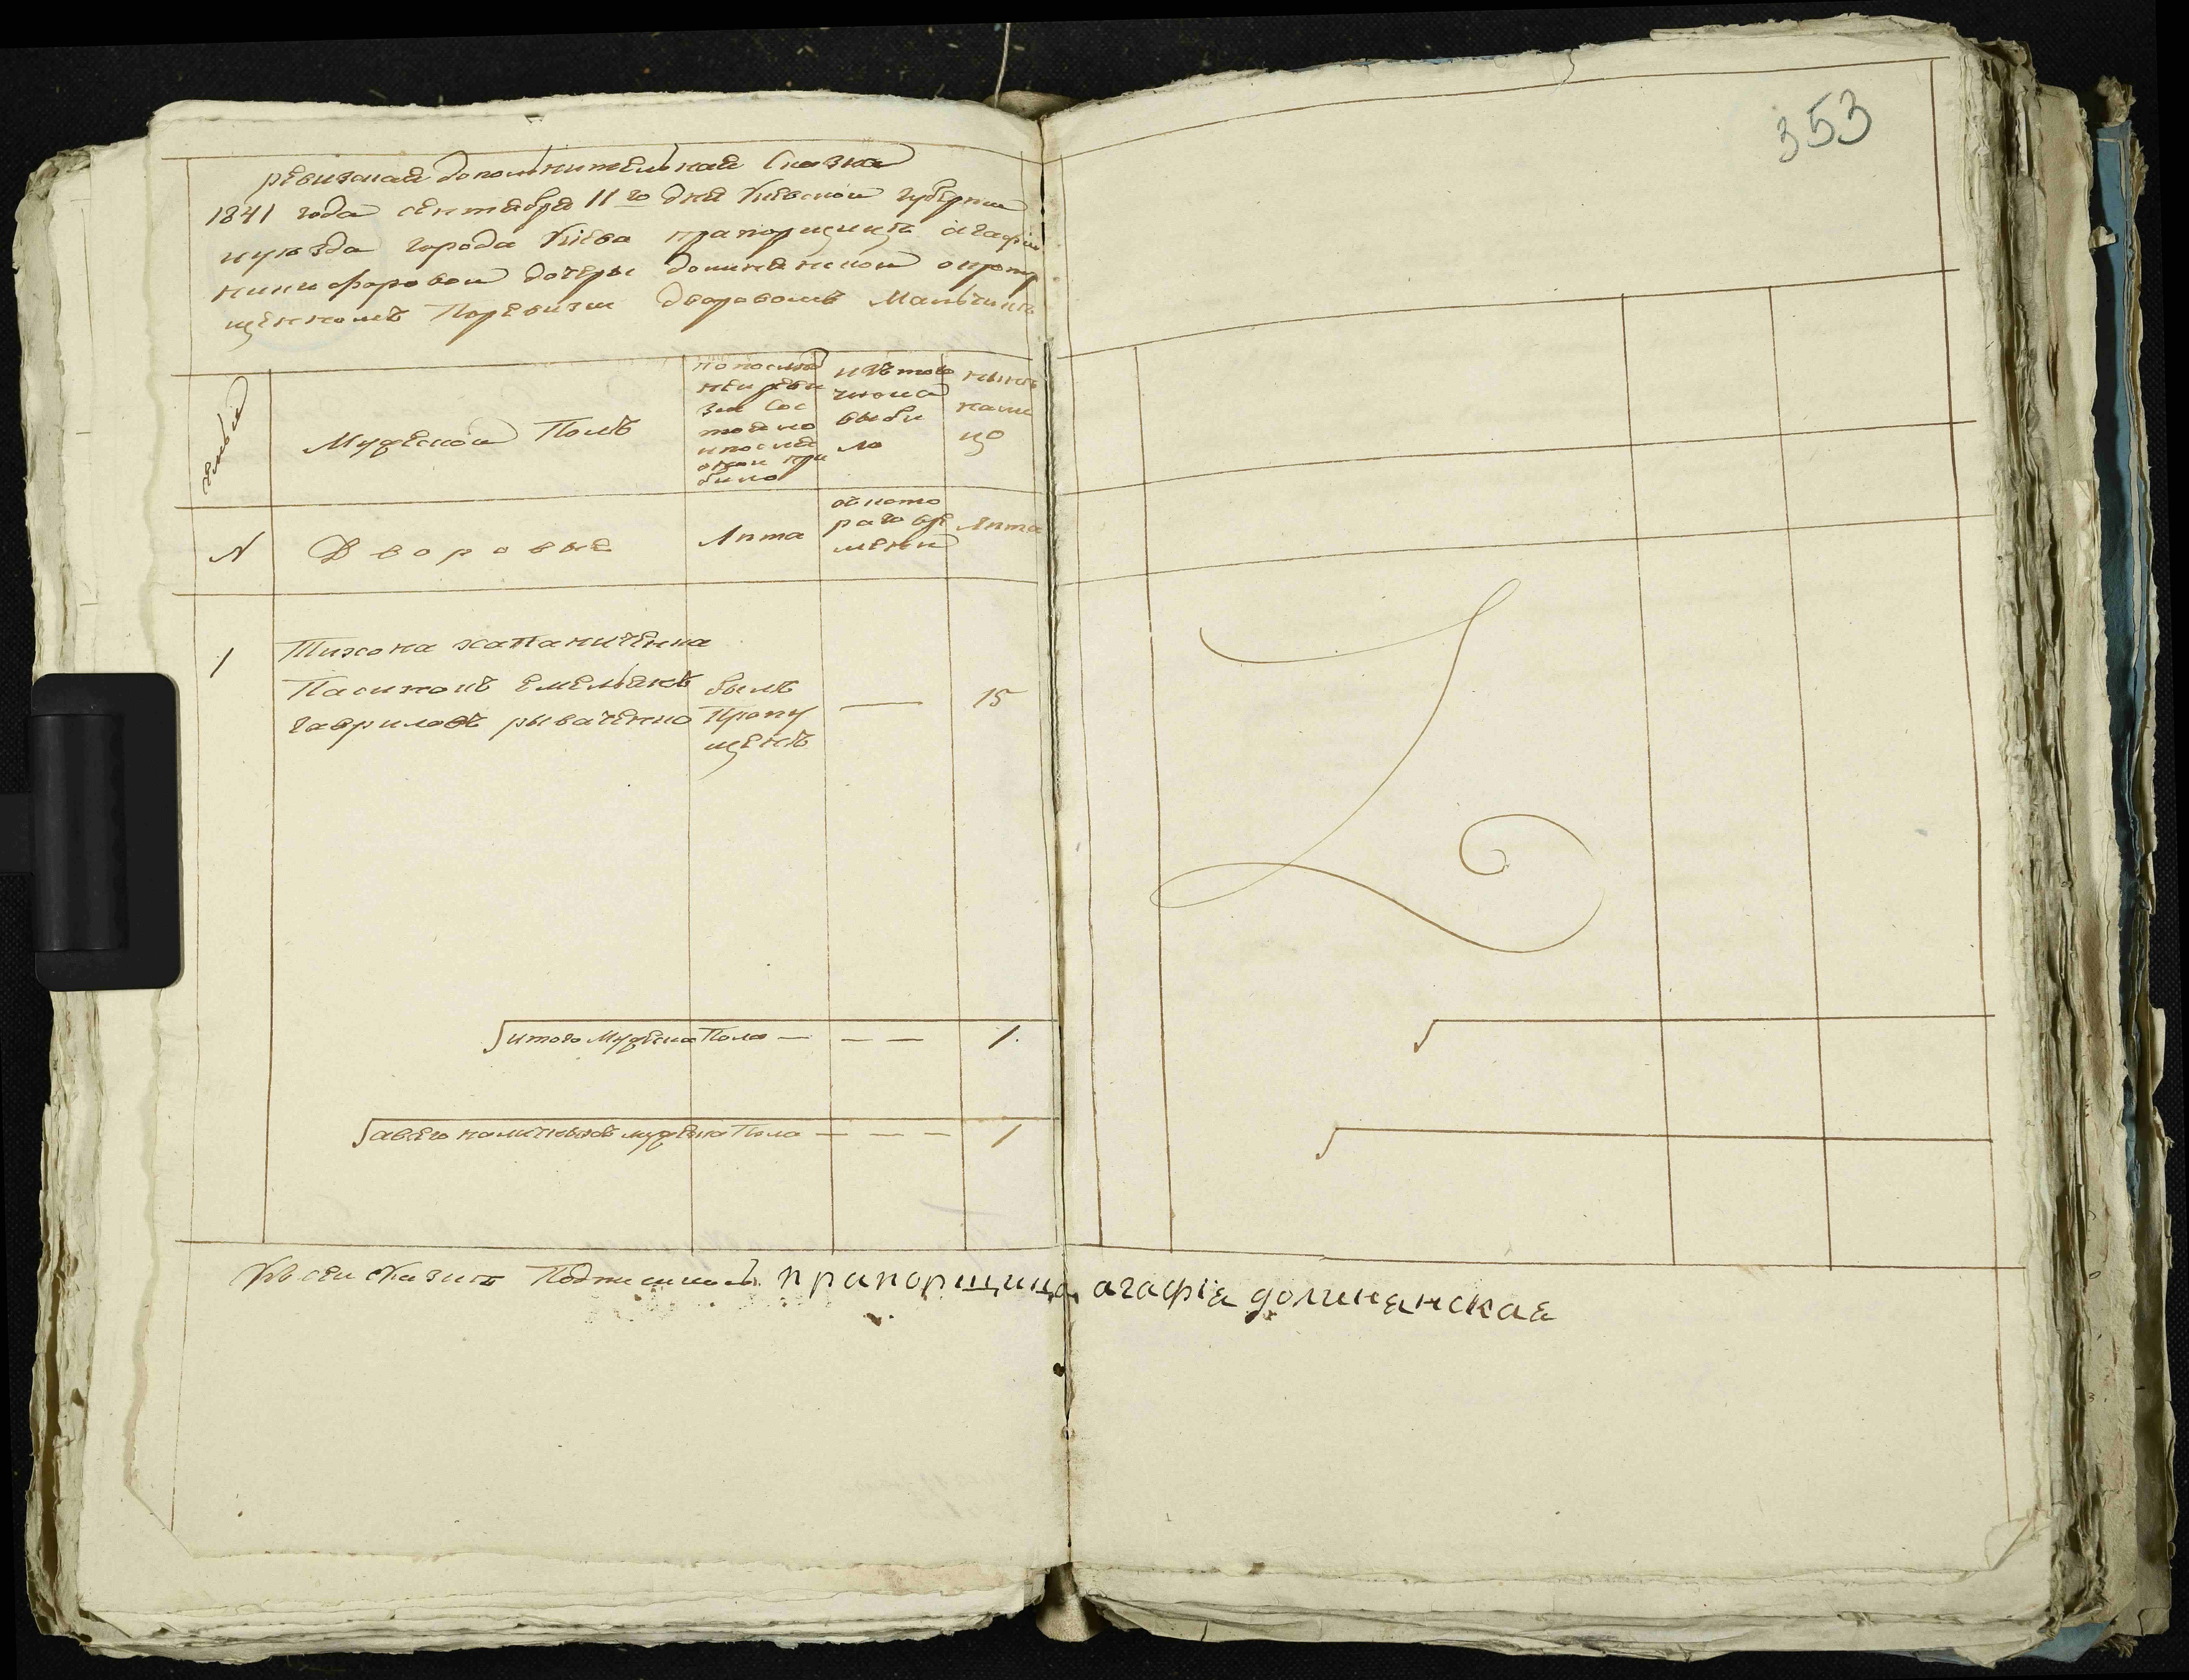 353
ревизкая дополнительная Сказка
1841 года сентября 11го дня Киевской губернии
и уезда города Киева прапорщицы агафии
никифоровой дочеры долинянской опропу
щенномъ По ревизии дворовомъ Мальчике
семьи
Мужеской Полъ
по послед
ней реви
зии Сос
тояло
и после
оной при
было
изъ того
числа
выбы
ло
ныне
нали
цо
N
Дворовые
Лета
съ кото
раго вре
мени
Лета
1
Тихона хапаниченка
Пасинокъ емельянъ
гавриловъ рываченко
былъ
Пропу
щенъ
—
15
итого Мужеска Пола — — — 1.
авсего наличныхъ мужеска Пола — — — 1
Къ сей сказке Подписалась прапорщица агафiя долинянская